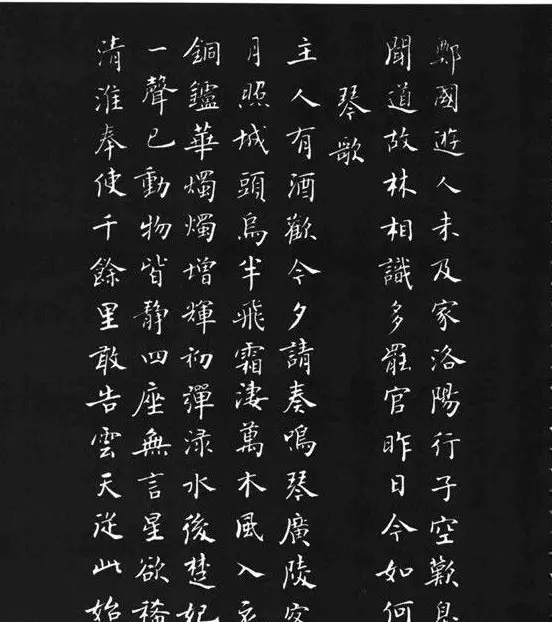 鄭國遊人未及家洛陽行子空歎息
聞道故林相識多罷官昨日今如何
琴歌
主人有酒歡今夕請奏鳴琴廣陵客
月照城頭烏半飛霜淒萬木風入衣
銅鑪華燭燭增輝初彈淥水後楚妃
一聲已動物皆靜四座無言星欲稀
清淮奉使千餘里敢告雲天從此始